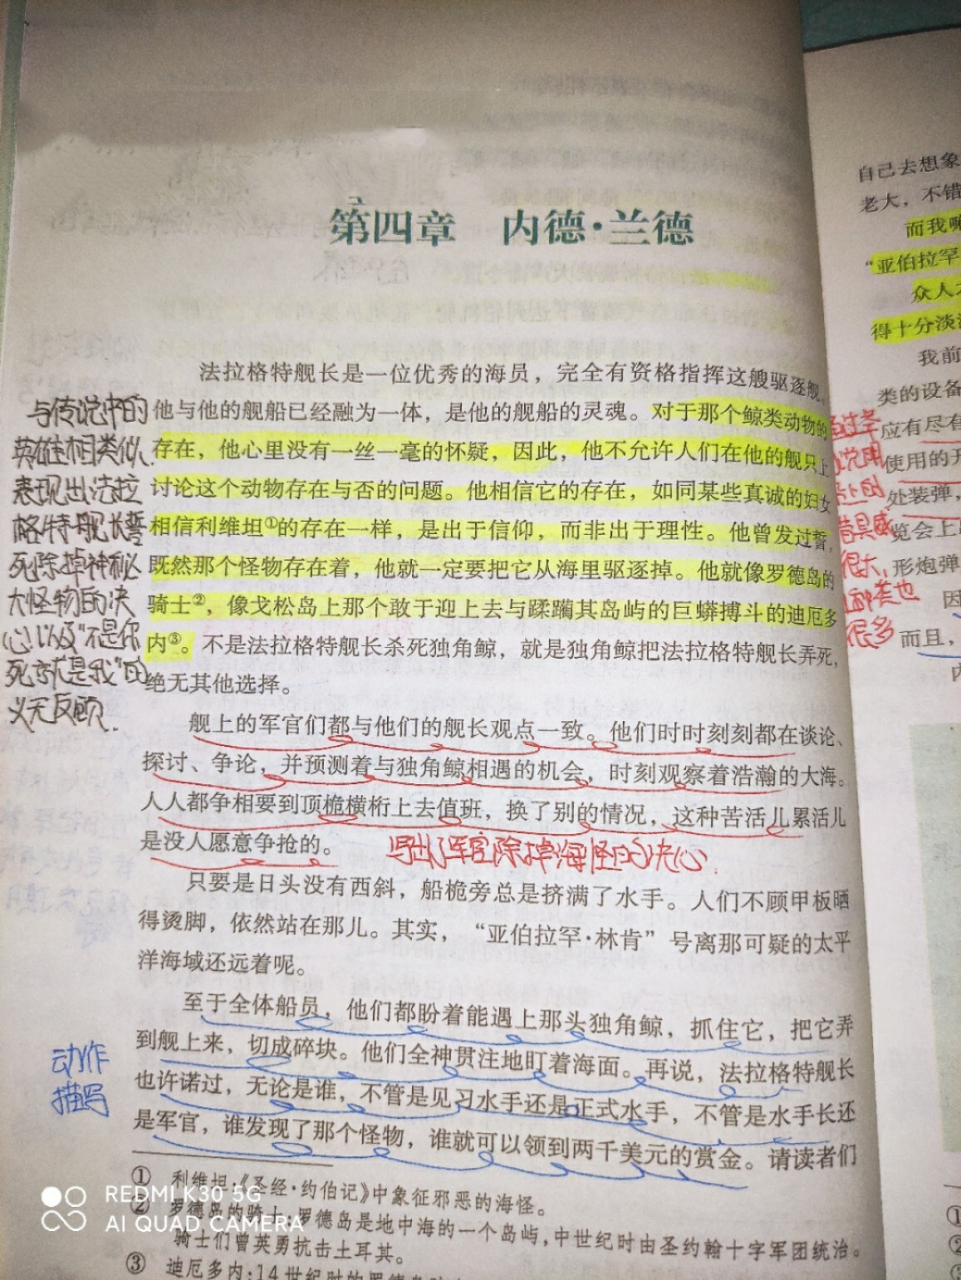 第四章 内德·兰德
法拉格特舰长是一位优秀的海员，完全有资格指挥这艘驱逐舰。
他与他的舰船已经融为一体，是他的舰船的灵魂。对于那个鲸类动物的
存在，他心里没有一丝一毫的怀疑，因此，他不允许人们在他的舰只上
讨论这个动物存在与否的问题。他相信它的存在，如同某些真诚的妇女
相信利维坦①的存在一样，是出于信仰，而非出于理性。他曾发过誓，
既然那个怪物存在着，他就一定要把它从海里驱逐掉。他就像罗德岛的
骑士②，像戈松岛上那个敢于迎上去与蹂躏其岛屿的巨蟒搏斗的迪厄多
内③。不是法拉格特舰长杀死独角鲸，就是独角鲸把法拉格特舰长弄死，
绝无其他选择。
与传说中的
英雄相类似，
表现出法拉
格特舰长誓
死除掉神秘
大怪物的决
心以及"不是你
死就是我"的
义无反顾.
舰上的军官们都与他们的舰长观点一致。他们时时刻刻都在谈论、
探讨、争论，并预测着与独角鲸相遇的机会，时刻观察着浩瀚的大海。
人人都争相要到顶桅横桁上去值班，换了别的情况，这种苦活儿累活儿
是没人愿意争抢的。
写出了军官除掉海怪的决心.
只要是日头没有西斜，船桅旁总是挤满了水手。人们不顾甲板晒
得烫脚，依然站在那儿。其实，“亚伯拉罕·林肯”号离那可疑的太平
洋海域还远着呢。
至于全体船员，他们都盼着能遇上那头独角鲸，抓住它，把它弄
到舰上来，切成碎块。他们全神贯注地盯着海面。再说，法拉格特舰长
也许诺过，无论是谁，不管是见习水手还是正式水手，不管是水手长还
是军官，谁发现了那个怪物，谁就可以领到两千美元的赏金。请读者们
动作
描写
① 利维坦：《圣经·约伯记》中象征邪恶的海怪。
② 罗德岛的骑士：罗德岛是地中海的一个岛屿，中世纪时由圣约翰十字军团统治。
骑士们曾英勇抗击土耳其。
③ 迪厄多内：14世纪时的罗德岛
REDMI K30 5G
AI QUAD CAMERA
自己去想象
老大，不错
而我嘛
“亚伯拉罕
众人
得十分淡
我前
类的设备
应有尽有
使用的开
处装弹，
览会上
形炮弹
因
而且，
种类也
很多